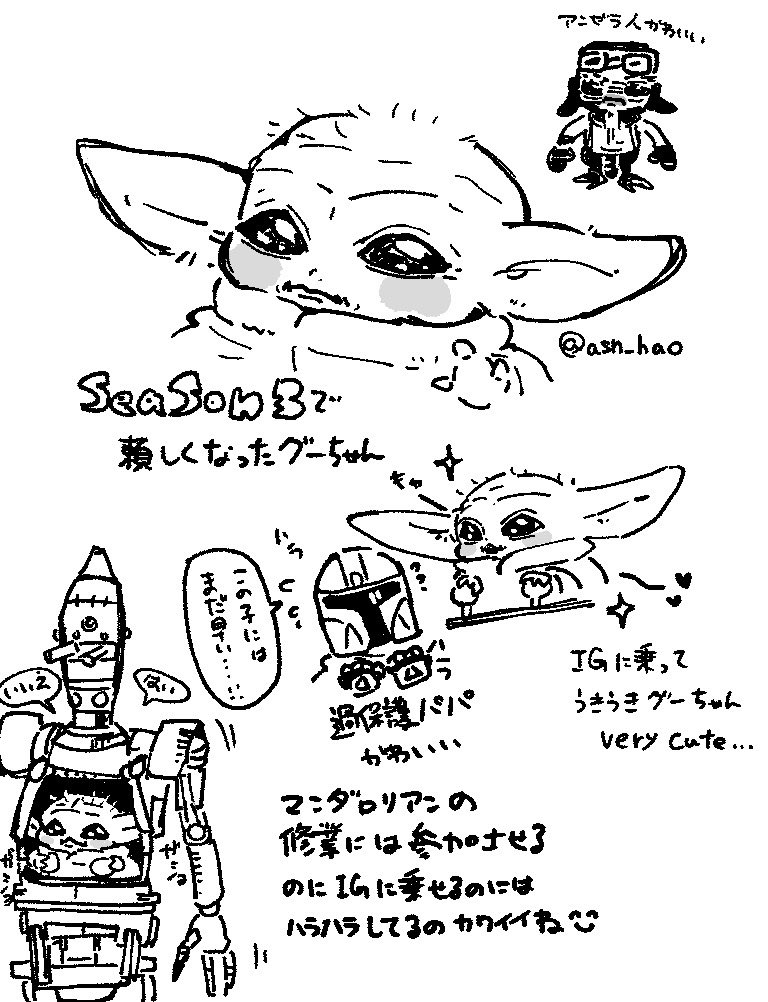 アンゼラ人かわいい
@asn_hao
SeaSon3で
頼しくなったグーちゃん
キャ
この子には
まだ早い……
過保護パパ
かわいい
IGに乗って
うきうきグーちゃん
very cute...
いいえ
はい
マンダロリアンの
修業には参加させる
のにIGに乗せるのには
ハラハラしてるのカワイイね